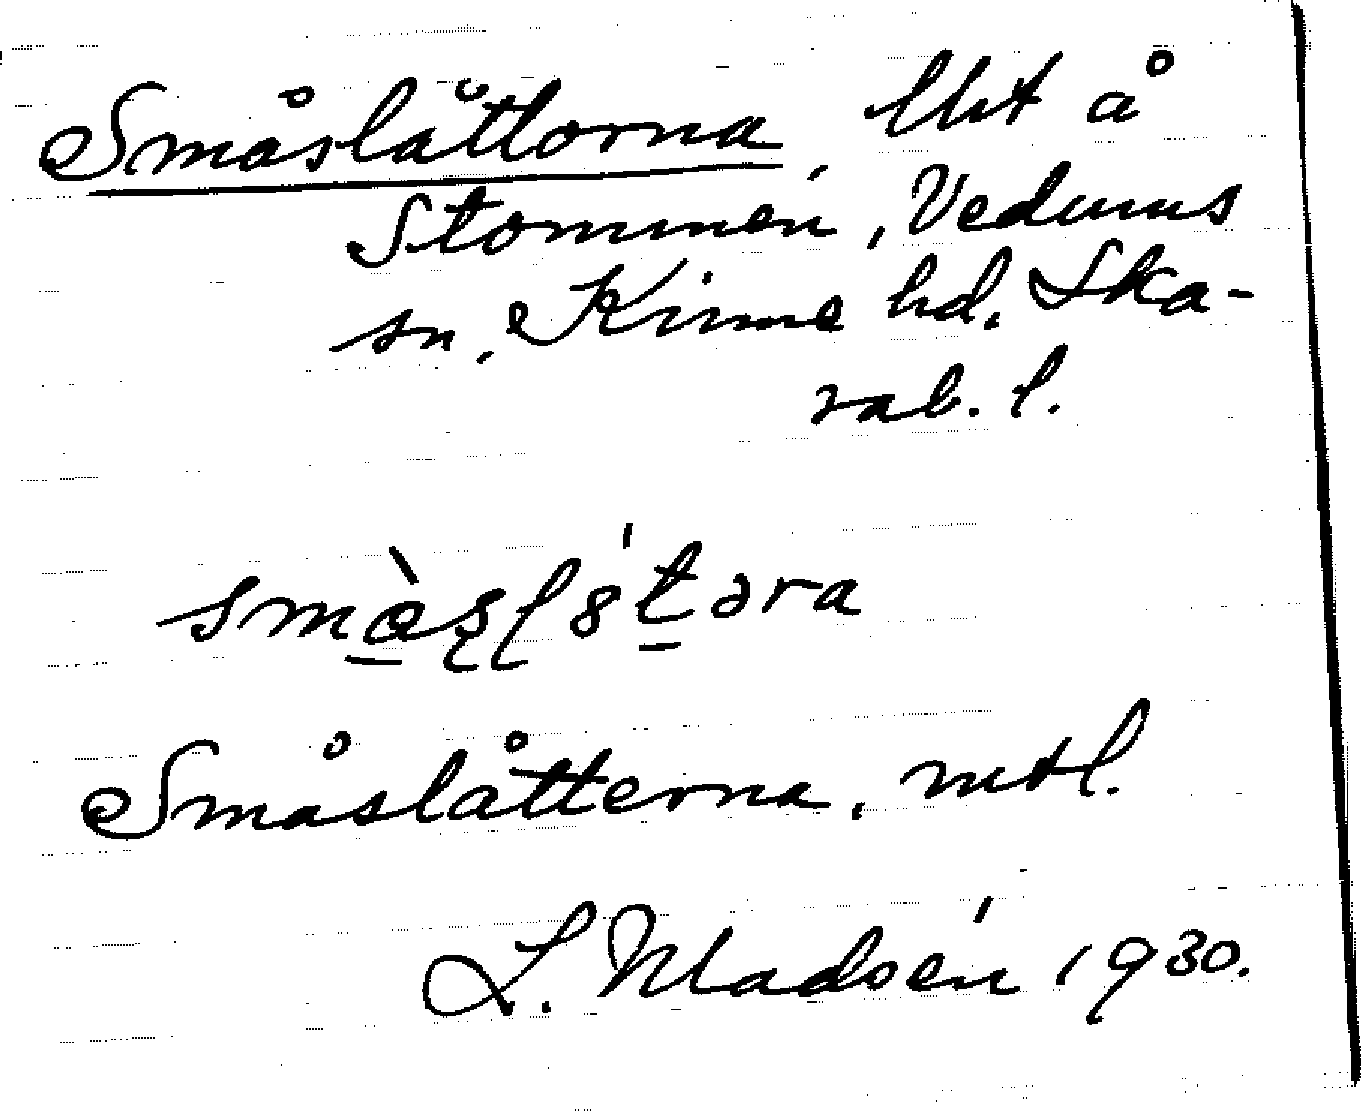 Småslåttorna, llit å
Stommen, Vedums
sn, Kinne hd. Ska-
rab. l.
Småslåtterna, mtl.
L. Madsén 1930.